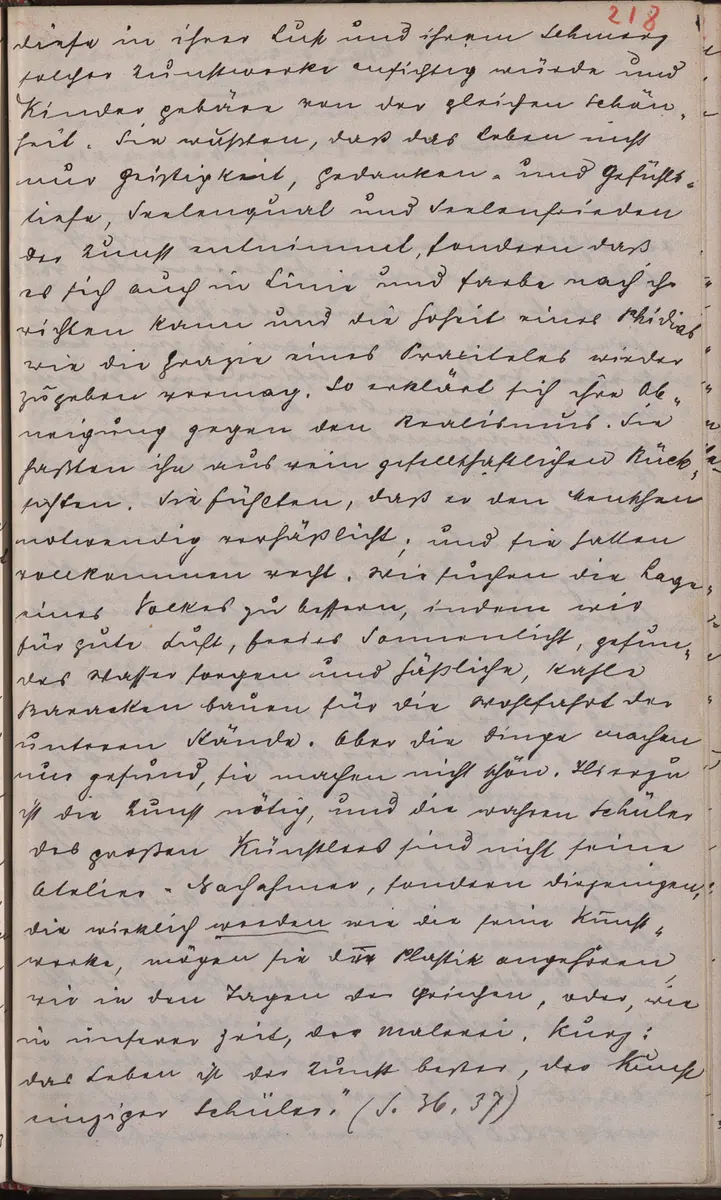 218
diese in ihrer Lust und ihrem Schmerz
solcher Kunstwerke ansichtig würde und
Kinder gebäre von der gleichen Schön-
heit. Sie wußten, daß das Leben nicht
nur Geistigkeit, Gedanken- und Gefühls-
tiefe, Seelenqual und Seelenfrieden
der Kunst entnimmt, sondern daß
es sich auch in Linie und Farbe nach ihr
richten kann und die Hoheit eines Phidias
wie die Grazie eines Praxiteles wieder
zugeben vermag. So erklärt sich ihre Ab-
neigung gegen den Realismus. Sie
haßten ihn aus rein gesellschaftlichen Rück-
sichten. Sie fühlten, daß er den Menschen
notwendig verhäßlicht; und sie hatten
vollkommen recht. Wir suchen die Lage
eines Volkes zu bessern, indem wir
für gute Luft, freies Sonnenlicht, gesun-
des Wasser sorgen und häßliche, kahle
Baracken bauen für die Wohlfahrt der
unteren Stände. Aber die Dinge machen
nur gesund, sie machen nicht schön. Hierzu
ist die Kunst nötig, und die wahren Schüler
des großen Künstlers sind nicht seine
Atelier-Nachahmer, sondern diejenigen,
die wirklich werden wie die seine Kunst-
werke, mögen sie der Plastik angehören,
wie in den Tagen der Griechen, oder, wie
in unserer Zeit, der Malerei. Kurz:
das Leben ist der Kunst bester, der Kunst
einziger Schüler." (S. 36, 37)